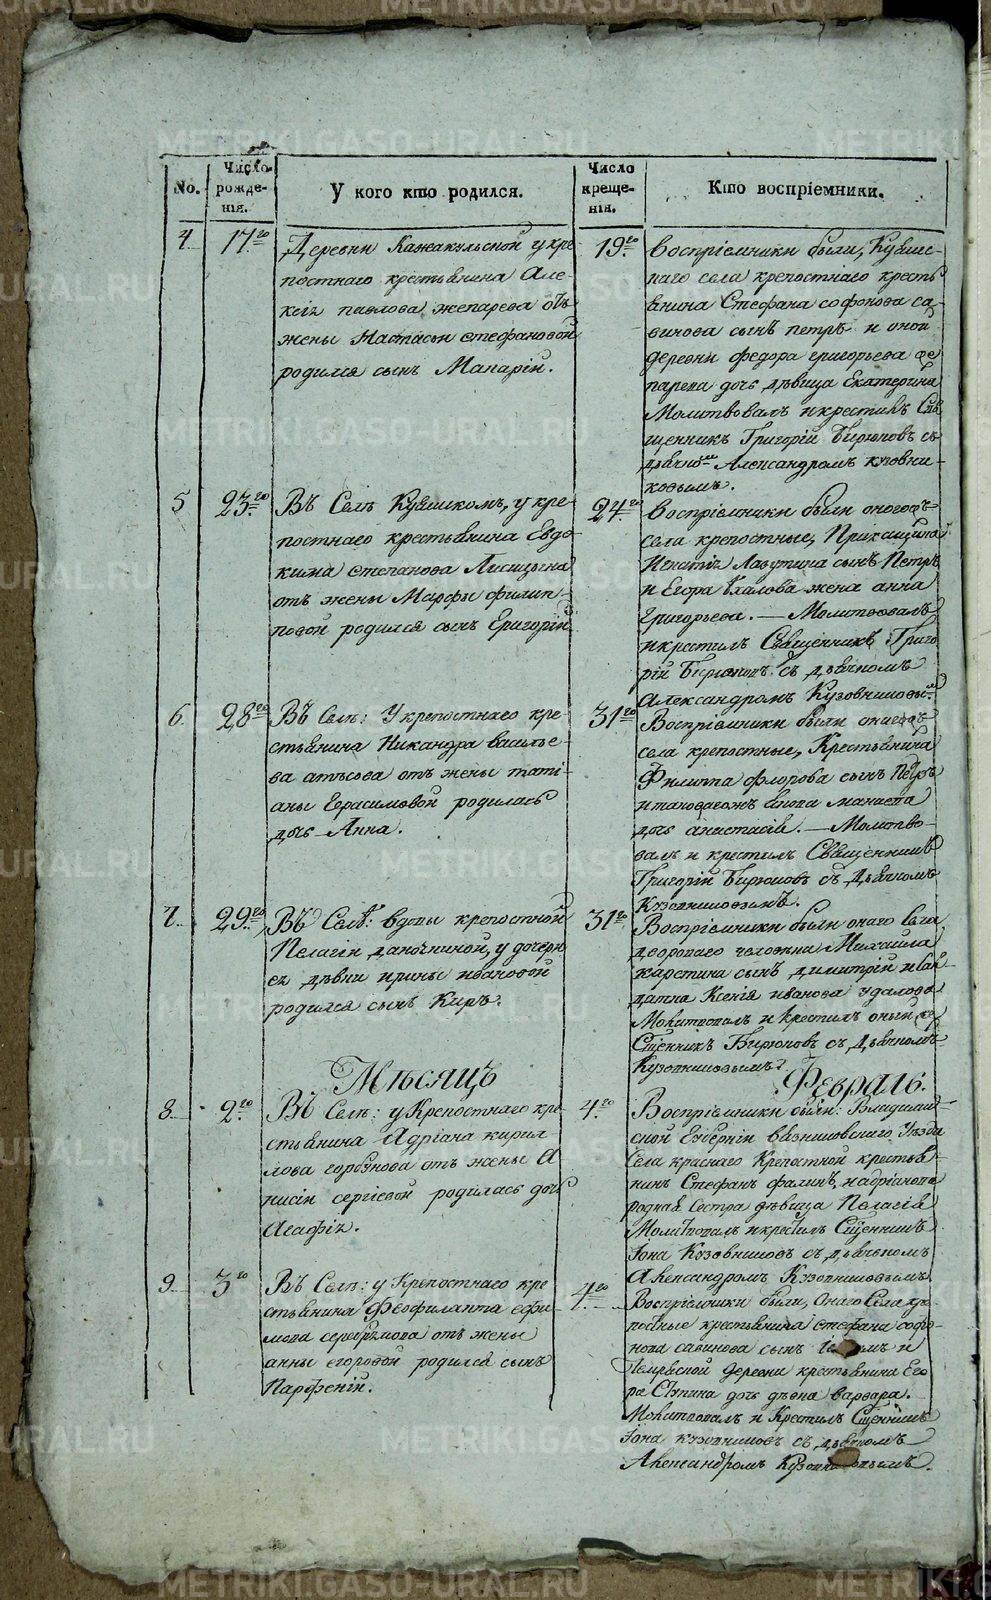 No.
Число рожде- нія.
У кого кто родился.
Число креще- нія.
Кто воспріемники.
4
17го
Деревни Кажакульской у кре
постнаго крестьянина Але
ксія павлова жепарева отъ
жены Настасьи стефановой
родился сынъ Макарій.
19го
Воспріемники были, Куяше-
наго села крепостнаго кресть
янина Стефана софонова са-
винова сынъ петръ и оной
деревни федора григорьева
парева дочь дѣвица Екатерина
Молитвовалъ и крестилъ Свя
щенникъ Григорій Бирюковъ съ
дьячкомъ Александромъ кузовни-
ковымъ.
5
23го
Въ Селѣ Куяшскомъ, у кре-
постнаго крестьянина Евдо-
кима степанова Лисицына
отъ жены Марфы филип-
повой родился сынъ Григорій
24го
Воспріемники были оногожъ
села крепостные, Прикащика
Игнатія Лазутина сынъ Петръ
и Егора жена анна
Григорьева. — Молитвовалъ
и крестилъ Священникъ Григо
рій Бирюковъ съ дьячкомъ
Александромъ Кузовниковы
6.
28го
Въ Селѣ: У крепостнаго кре-
стьянина Никандра василье-
ва отъ жены тати-
аны Герасимовой родилась
дочь Анна.
31го
Воспріемники были оногожъ
села крепостные, Крестьянина
Филиппа флорова сынъ Петръ
и таковагожъ
дочь анастасія. — Молитво-
валъ и крестилъ Священникъ
Григорій Бирюковъ съ Дьячкомъ
Кузовниковымъ.
7
29го
Въ Селѣ: вдовы крепостной
Пелагіи, у дочери
ея дѣвки ирины ивановой
родился сынъ Киръ.
31го
Воспріемники были онаго Села
двороваго человѣка Михайла
карстина сынъ димитрій и
Ксенія иванова удалова
Молитвовалъ и крестилъ оный
Сщенникъ Бирюковъ съ Дьячкомъ
Кузовниковымъ
Мѣсяцъ Февраль.
8
2го
Въ Селѣ: у Крепостнаго кре-
стьянина Адріана кирил-
лова горбунова отъ жены А
нисіи сергіевой родилась дочь
Агафія.
4го
Воспріемники были: Владими-
ской Губерніи вязниковскаго Уѣзда
Села краснаго Крепостной крестья-
нинъ Стефанъ фалинъ,
родная Сестра дѣвица Пелагія
Молитвовалъ и крестилъ Сщенникъ
Іона Кузовниковъ съ дьячкомъ
Александромъ Кузовниковымъ
9
3го
Въ Селѣ: у Крепостнаго кре
стьянина Феофилакта ефи
мова отъ жены
анны егоровой родился сынъ
Парфеній.
4го
Воспріемники были, Онаго Села кре-
постные крестьянина стефана софо-
нова савинова сынъ и
деревни крестьянина Его
ра Ступина дочь дѣвка варвара.
Молитвовалъ и Крестилъ Сщенникъ
Іона кузовниковъ съ дьячкомъ
Александромъ Кузовниковымъ.
METRIKI.GASO-URAL.RU